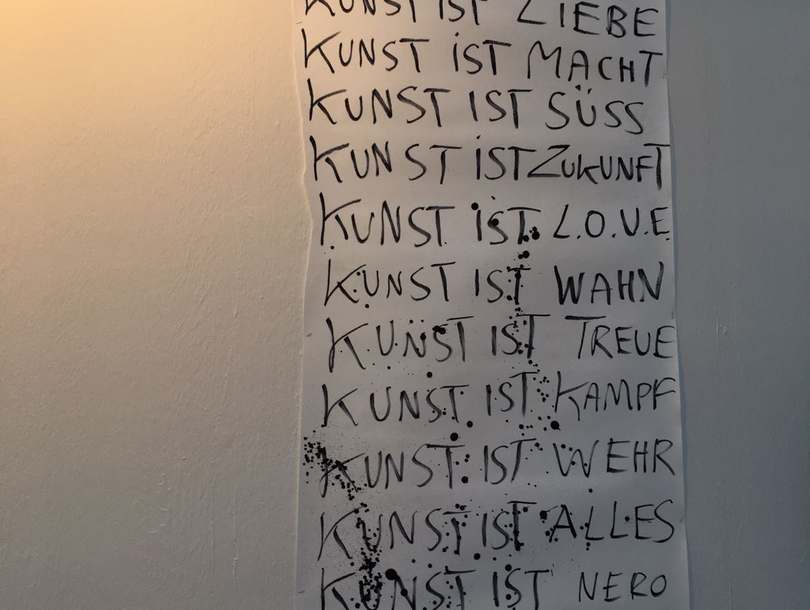 KUNST IST LIEBE
KUNST IST MACHT
KUNST IST SÜSS
KUNST IST ZUKUNFT
KUNST IST L.O.V.E
KUNST IST WAHN
KUNST IST TREUE
KUNST IST KAMPF
KUNST IST WEHR
KUNST IST ALLES
KUNST IST NERO